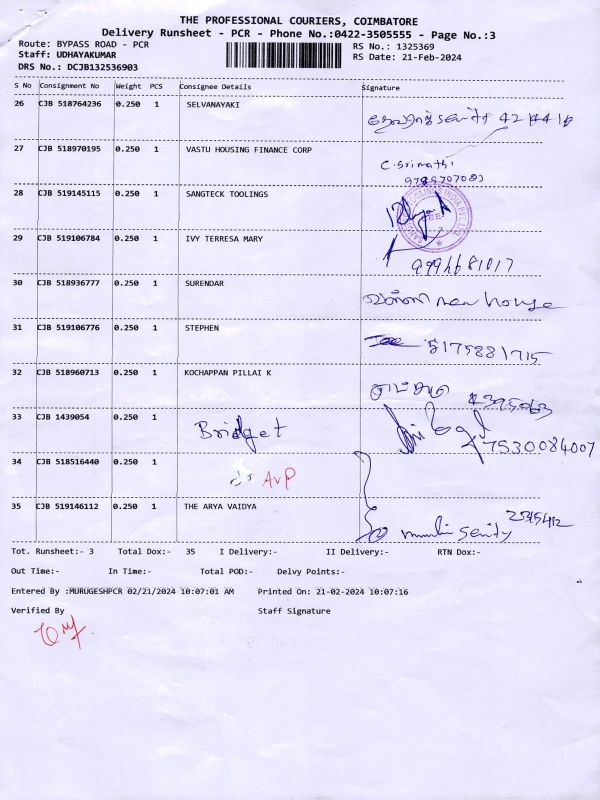 THE PROFESSIONAL COURIERS, COIMBATORE
Delivery Runsheet - PCR - Phone No.:0422-3505555 - Page No.:3
Route: BYPASS ROAD - PCR
Staff: UDHAYAKUMAR
DRS No.: DCJB132536903
RS No.: 1325369
RS Date: 21-Feb-2024
S No Consignment No Weight PCS Consignee Details Signature
26 CJB 518764236 0.250 1 SELVANAYAKI
27 CJB 518970195 0.250 1 VASTU HOUSING FINANCE CORP C. Srimathi
9789707083
28 CJB 519145115 0.250 1 SANGTECK TOOLINGS
29 CJB 519106784 0.250 1 IVY TERRESA MARY
30 CJB 518936777 0.250 1 SURENDAR new house
31 CJB 519106776 0.250 1 STEPHEN
32 CJB 518960713 0.250 1 KOCHAPPAN PILLAI K
33 CJB 1439054 0.250 1 Bridget 7530084007
34 CJB 518516440 0.250 1 AVP
35 CJB 519146112 0.250 1 THE ARYA VAIDYA
Tot. Runsheet:- 3 Total Dox:- 35 I Delivery:- II Delivery:- RTN Dox:-
Out Time:- In Time:- Total POD:- Delvy Points:-
Entered By :MURUGESHPCR 02/21/2024 10:07:01 AM Printed On: 21-02-2024 10:07:16
Verified By Staff Signature